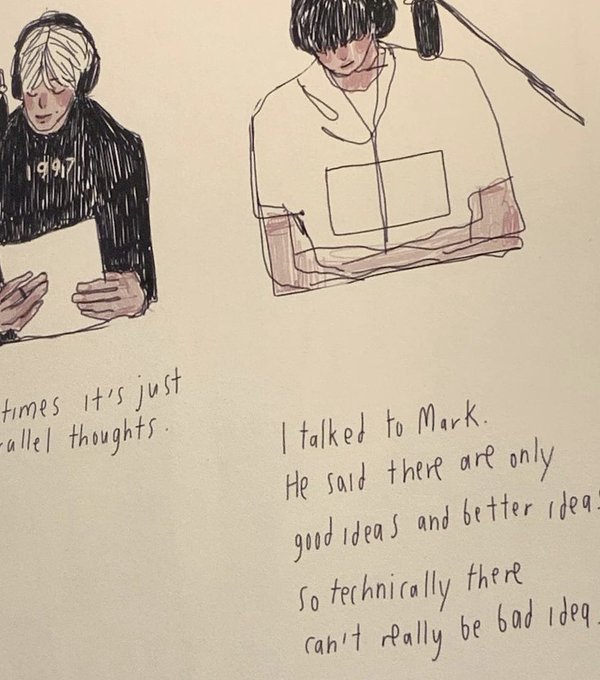 1997
times it's just
rallel thoughts.
I talked to Mark.
He said there are only
good ideas and better ideas
so technically there
can't really be bad idea.